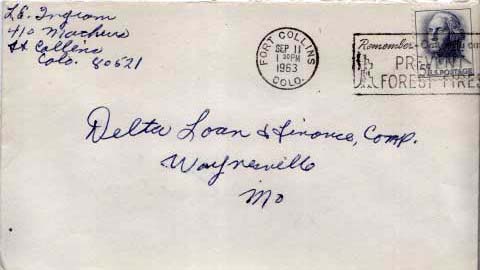 L.E. Ingram
410 Mathews
Ft Collins
Colo. 80521
FORT COLLINS
SEP 11
1 30PM
1963
COLO.
Remember Only
PREVENT
FOREST FIRES
U.S. POSTAGE
Delta Loan & Finance, Comp.
Waynesville
Mo